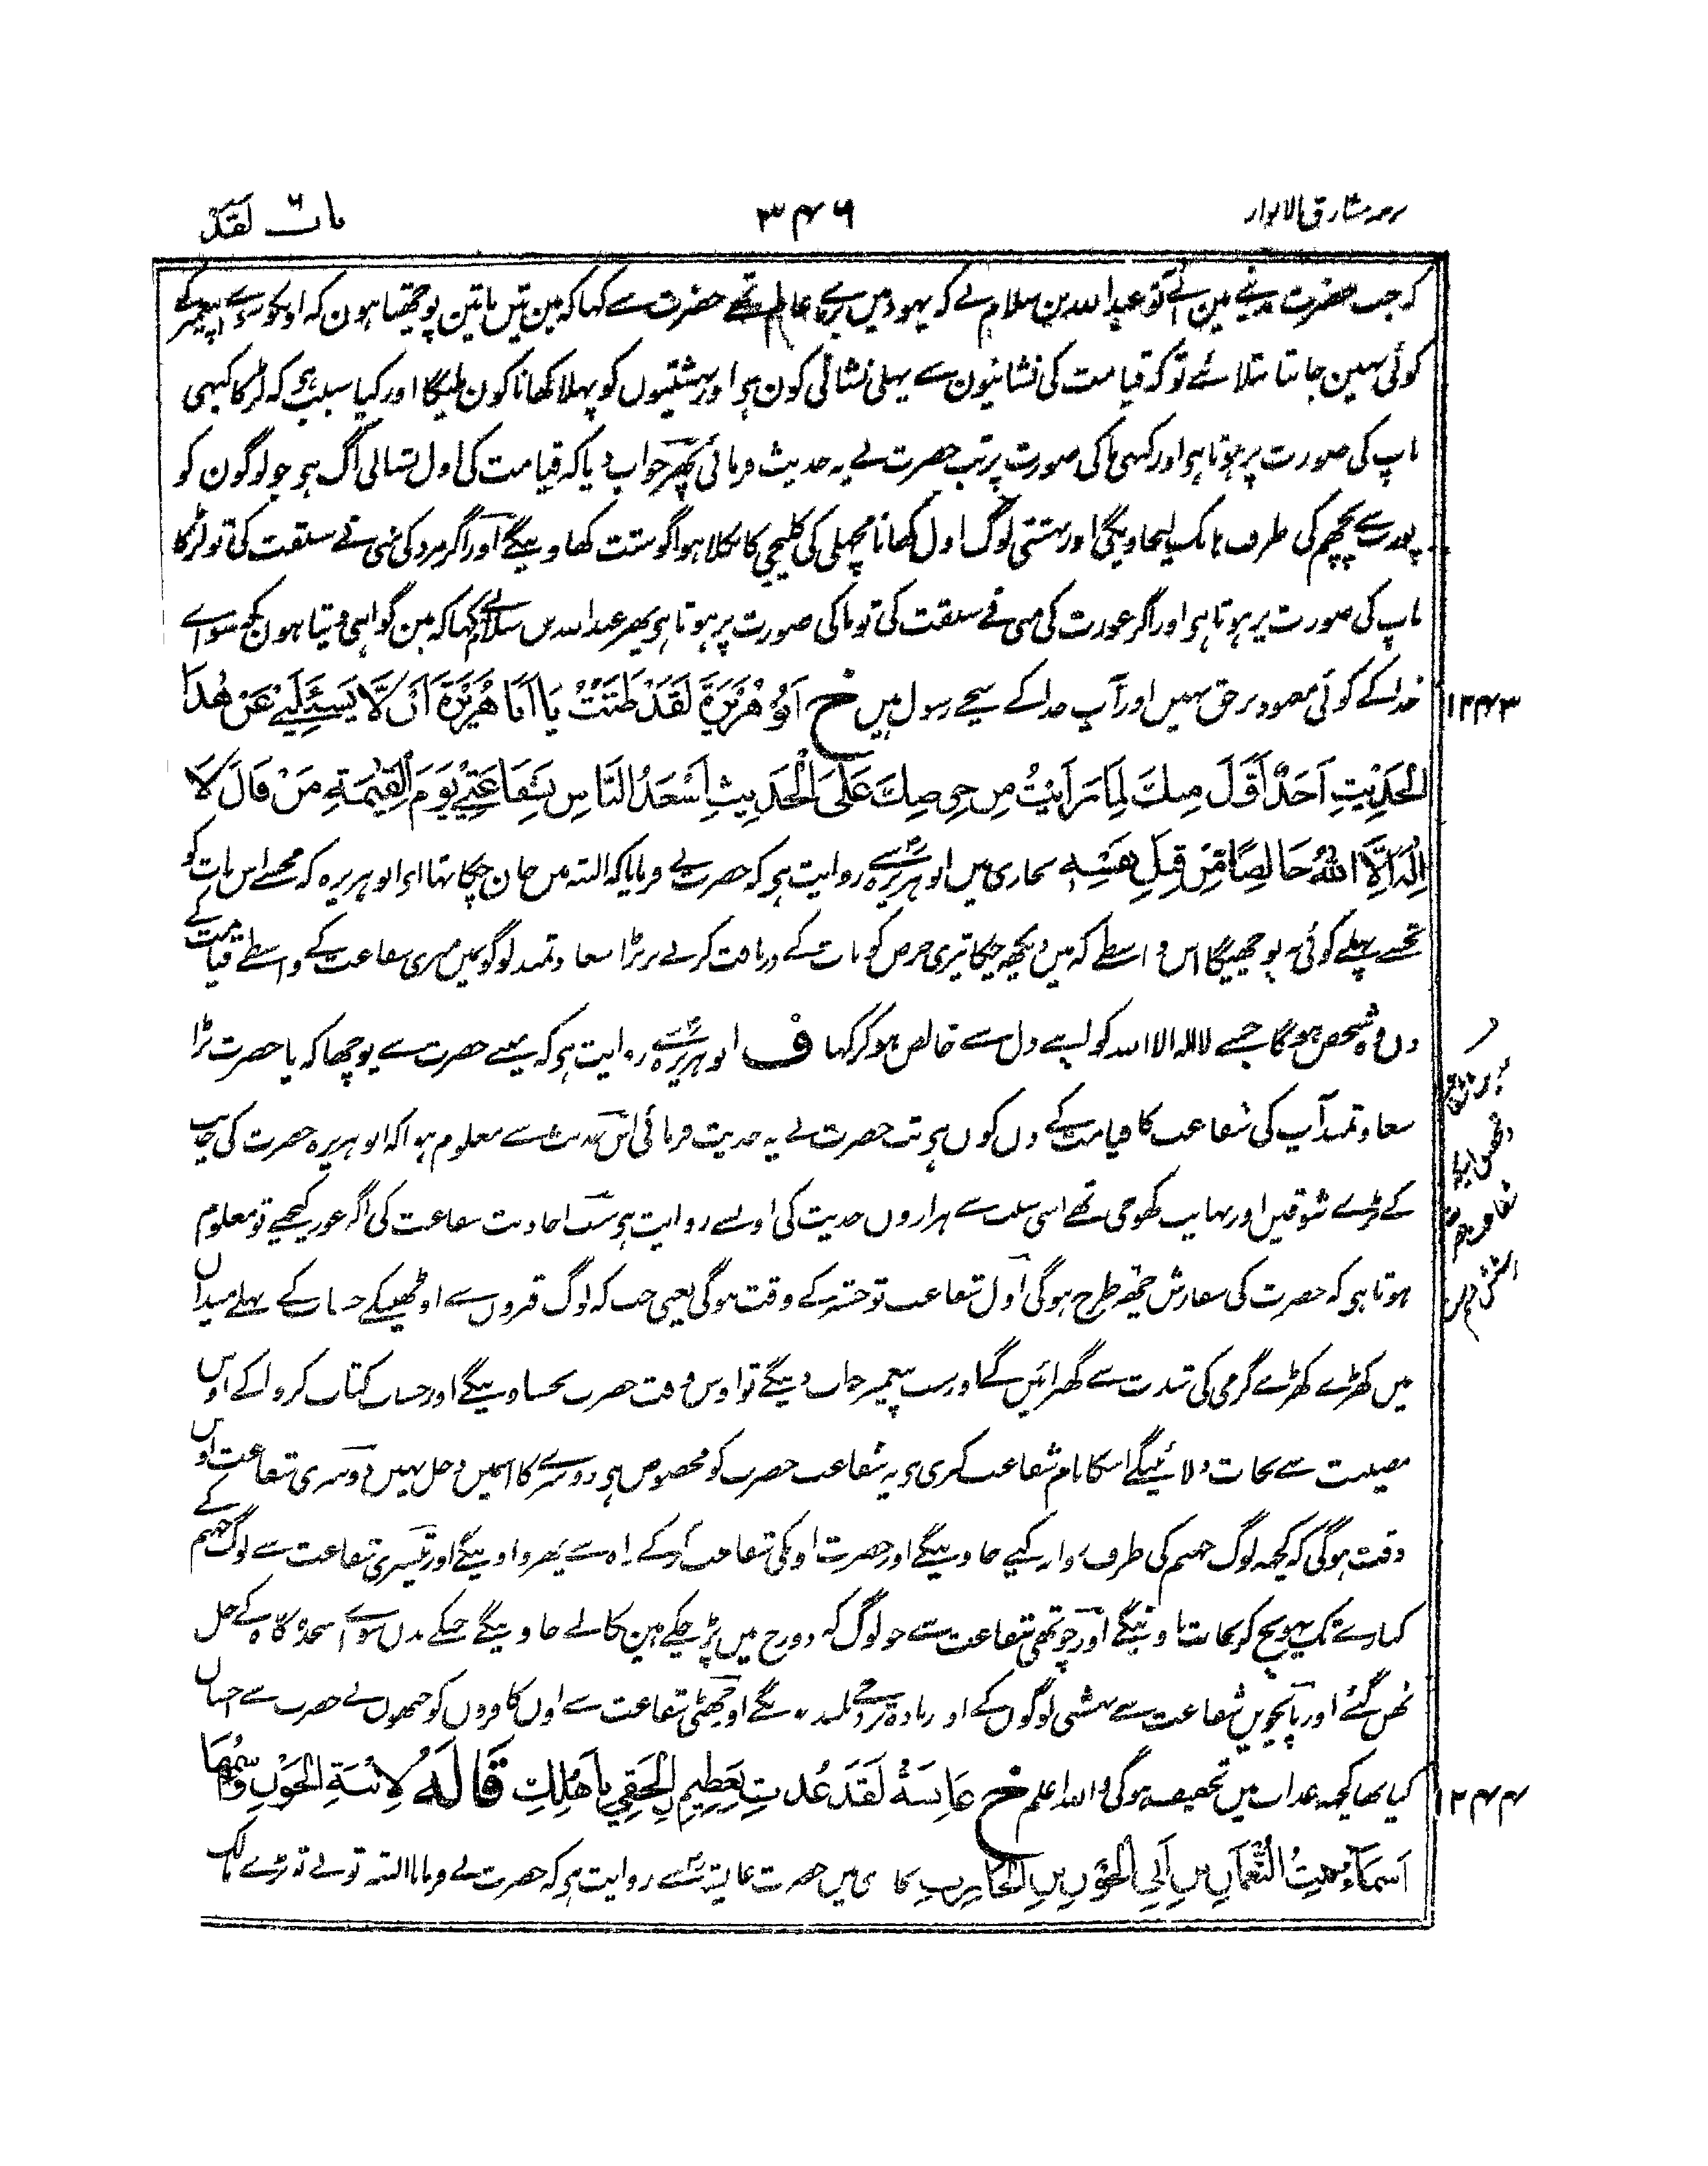 ترجمہ مشارق الانوار
۳۴۶
باب لقد
کہ جب حضرت مدینے مین آئے تو عبد اللہ بن سلام نے کہ یہود میں بڑے عالم تھے حضرت سے کہا کہ مین تین باتین پوچھتا ہون کہ اونکو سوائے پیغمبر کے
کوئی نہین جانتا بتلائے تو کہ قیامت کی نشانیون سے پہلی نشانی کون ہی اور بہشتیوں کو پہلا کھانا کون ملیگا اور کیا سبب ہی کہ لڑکا کبہی
باپ کی صورت پر ہوتا ہی اور کبہی ما کی صورت پر تب حضرت نے یہ حدیث فرمائی پھر جواب دیا کہ قیامت کی اول نشانی آگ ہی جو لوگون کو
پورب سے پچھم کی طرف ہانک لیجاویگی اور بہشتی لوگ اول کھانا مچھلی کی کلیجی کا نکلا ہوا گوشت کھاوینگے اور اگر مرد کی منی نے سبقت کی تو لڑکا
باپ کی صورت پر ہوتا ہی اور اگر عورت کی منی نے سبقت کی تو ما کی صورت پر ہوتا ہی پھر عبد اللہ بن سلام نے کہا کہ مین گواہی دیتا ہون کہ سواے
خدا کے کوئی معبود برحق نہیں اور آپ خدا کے سچے رسول ہیں خ اَبُوْ هُرَيْرَةَ لَقَدْ ظَنَنْتُ يَا اَبَا هُرَيْرَةَ اَنْ لَّا يَسْئَلَنِيْ عَنْ هٰذَا
۱۲۴۳
الْحَدِيْثِ اَحَدٌ اَوَّلَ مِنْكَ لِمَا رَاَيْتُ مِنْ حِرْصِكَ عَلَى الْحَدِيْثِ اَسْعَدُ النَّاسِ بِشَفَاعَتِيْ يَوْمَ الْقِيٰمَةِ مَنْ قَالَ لَا
اِلٰهَ اِلَّا اللهُ خَالِصًا مِّنْ قِبَلِ نَفْسِهٖ بخاری میں ابو ہریرہ سے روایت ہی کہ حضرت نے فرمایا کہ البتہ میں جان چکا تھا ای ابو ہریرہ کہ مجھسے اس بات کو
تجھسے پہلے کوئی نہ پوچھیگا اس واسطے کہ میں دیکھ چکا تیری حرص کو بات کے دریافت کرنے پر بڑا سعادتمند لوگونمیں میری شفاعت کے واسطے قیامت کے
دن وہ شخص ہوگا جسنے لا الہ الا اللہ کو اپنے دل سے خالص ہو کر کہا ف ابو ہریرہ سے روایت ہی کہ مینے حضرت سے پوچھا کہ یا حضرت بڑا
سعادتمند آپ کی شفاعت کا قیامت کے دن کون ہی تب حضرت نے یہ حدیث فرمائی اس حدیث سے معلوم ہوا کہ ابو ہریرہ حضرت کی حدیث
کے بڑے شوقین اور نہایت کھوجی تھے اسی سبب سے ہزاروں حدیث کی اونسے روایت ہی سب احادیث شفاعت کی اگر غور کیجیے تو معلوم
ہوتا ہی کہ حضرت کی سفارش چھ طرح ہوگی اول شفاعت تو حشر کے وقت ہوگی یعنی جب کہ لوگ قبروں سے اوٹھینگے حساب کے پہلے میدان
میں کھڑے کھڑے گرمی کی شدت سے گھبرائیں گے اور سب پیغمبر جواب دینگے تو اوس وقت حضرت بخشاوینگے اور حساب کتاب کروا کے اوس
مصیبت سے نجات دلائینگے اسکا نام شفاعت کبری ہی یہ شفاعت حضرت کو مخصوص ہی دوسرے کا اسمیں دخل نہیں دوسری شفاعت اوس
وقت ہوگی کہ کچھ لوگ جہنم کی طرف روانہ کیے جاوینگے اور حضرت اونکی شفاعت کرکے راہ سے پھرواوینگے اور تیسری شفاعت سے لوگ جہنم کے
کنارے تک پہونچ کر نجات پاوینگے اور چوتھی شفاعت سے جو لوگ کہ دوزخ میں پڑ چکے ہین نکالے جاوینگے جنکے بدن سواے سجدہ گاہ کے جل
بھن گئے اور پانچویں شفاعت سے بہشتی لوگوں کے اور زیادہ درجے بلند ہونگے اور چھٹی شفاعت سے اون کافروں کو جنھوں نے حضرت سے احسان
کیا تھا کچھ عذاب میں تخفیف ہوگی واللہ اعلم خ عَائِشَةُ لَقَدْ عُذْتِ بِعَظِيْمٍ اِلْحَقِيْ بِاَهْلِكِ قَالَهُ لِابْنَةِ الْجَوْنِ وَاسْمُهَا
۱۲۴۴
اَسْمَاءُ بِنْتُ النُّعْمَانِ بْنِ اَبِي الْجَوْنِ بْنِ الْحَارِثِ بخاری میں حضرت عایشہ سے روایت ہی کہ حضرت نے فرمایا البتہ تو نے تو بڑے مالک